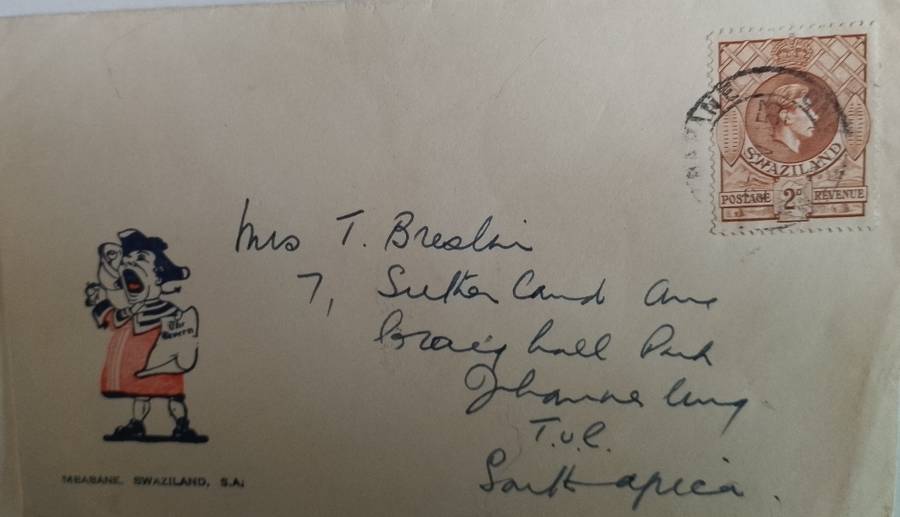 BABANE
SWAZILAND
POSTAGE 2D REVENUE
Mrs T. Breslin
7, Sutherland Ave
Craighall Park
Johannesburg.
T.v.l.
South Africa.
The
Tavern
MBABANE, SWAZILAND, S.A.